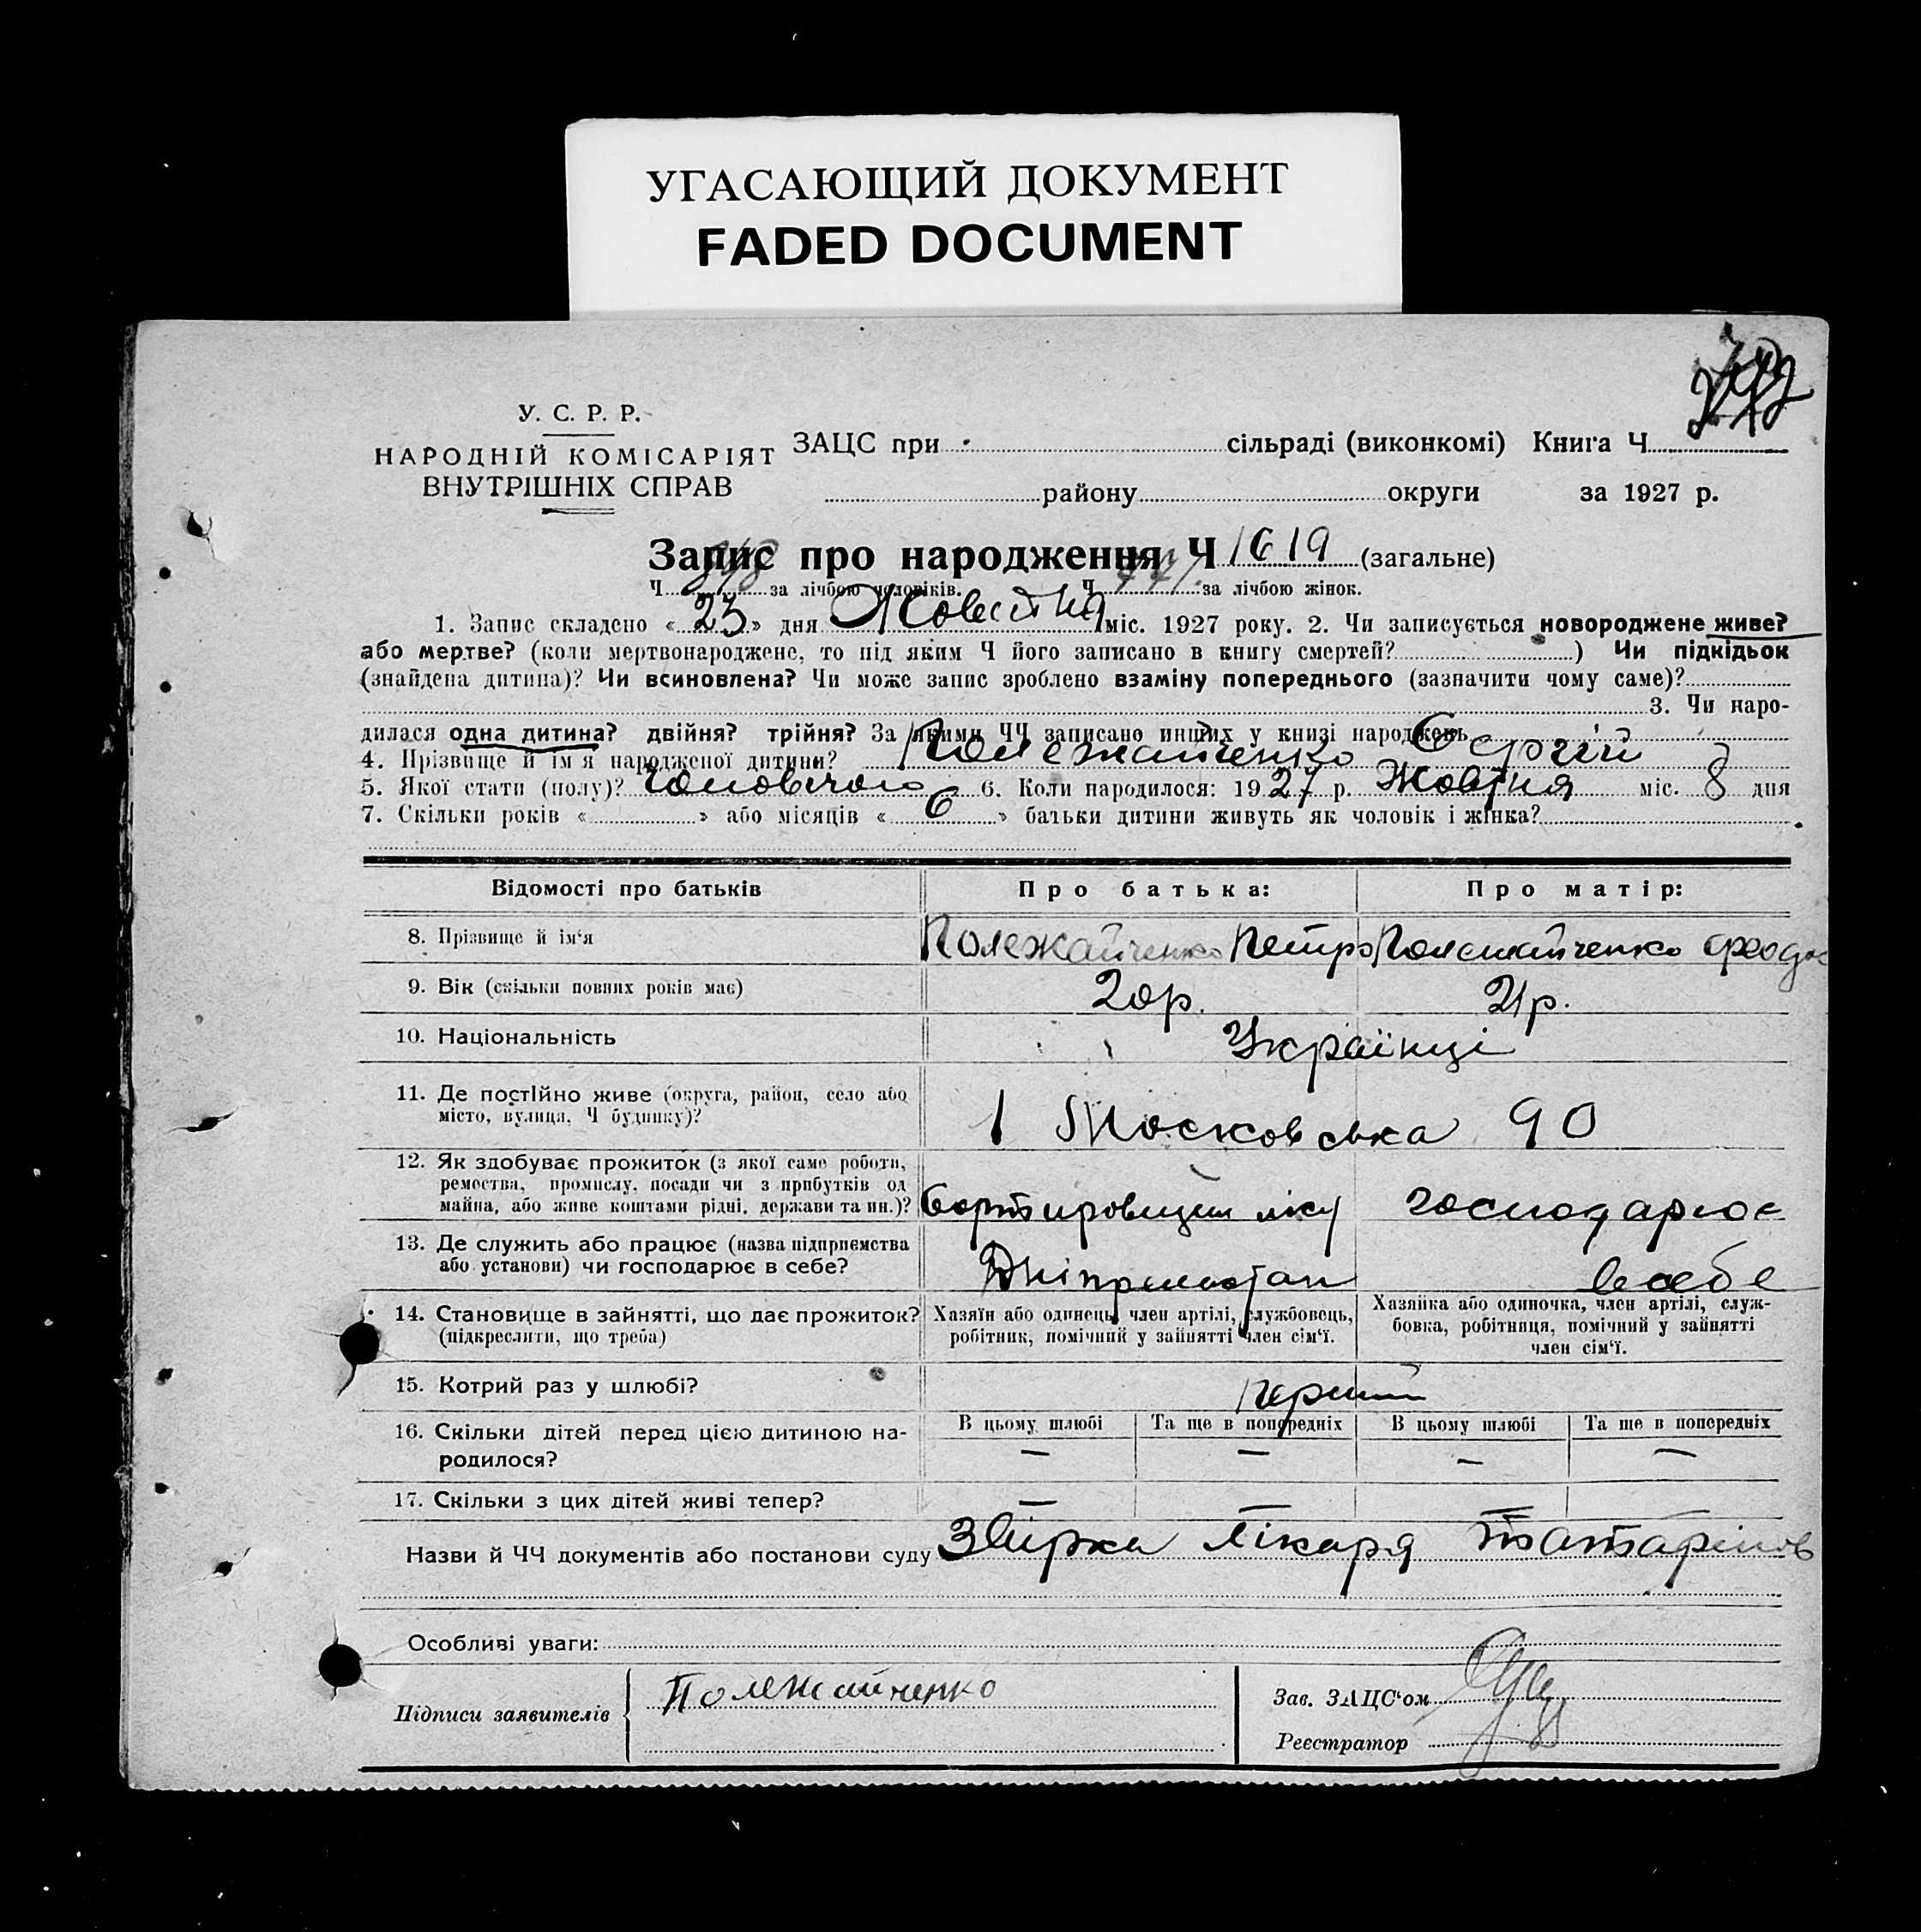 УГАСАЮЩИЙ ДОКУМЕНТ
FADED DOCUMENT
У. С. Р. Р.
НАРОДНІЙ КОМІСАРІЯТ
ВНУТРІШНІХ СПРАВ
ЗАЦС при сільраді (виконкомі) Книга Ч
району округи за 1927 р.
Запис про народження Ч 1619 (загальне)
Ч за лічбою чоловіків. Ч за лічбою жінок.
1. Запис складено « 23 » дня Жовтня міс. 1927 року. 2. Чи записується новороджене живе?
або мертве? (коли мертвонароджене, то під яким Ч його записано в книгу смертей? ) Чи підкідьок
(знайдена дитина)? Чи всиновлена? Чи може запис зроблено взаміну попереднього (зазначити чому саме)?
3. Чи наро-
дилася одна дитина? двійня? трійня? За якими ЧЧ записано инших у книзі народжень
4. Прізвище й ім'я народженої дитини? Полежайченко Сергій
5. Якої стати (полу)? чоловічого 6. Коли народилося: 1927 р. Жовтня міс. 8 дня
7. Скільки років « » або місяців « 6 » батьки дитини живуть як чоловік і жінка?
Відомості про батьків Про батька: Про матір:
8. Прізвище й ім'я Полежайченко Петро Полежайченко
9. Вік (скільки повних років має) 20р. 21р.
10. Національність Українці
11. Де постійно живе (округа, район, село або
місто, вулиця, Ч будинку)? 1 Московська 90
12. Як здобуває прожиток (з якої саме роботи,
ремества, промислу, посади чи з прибутків од
майна, або живе коштами рідні, держави та ин.)? лісу господарює
13. Де служить або працює (назва підприємства
або установи) чи господарює в себе? в себе
14. Становище в зайнятті, що дає прожиток?
(підкреслити, що треба)
Хазяїн або одинець, член артілі, службовець,
робітник, помічний у зайнятті член сім'ї.
Хазяйка або одиночка, член артілі, служ-
бовка, робітниця, помічний у зайнятті
член сім'ї.
15. Котрий раз у шлюбі? перший
16. Скільки дітей перед цією дитиною на-
родилося?
В цьому шлюбі Та ще в попередніх В цьому шлюбі Та ще в попередніх
— — — —
17. Скільки з цих дітей живі тепер? — — —
Назви й ЧЧ документів або постанови суду Звірка лікаря Татарінов
Особливі уваги:
Підписи заявителів Полежайченко
Зав. ЗАЦС'ом
Реєстратор